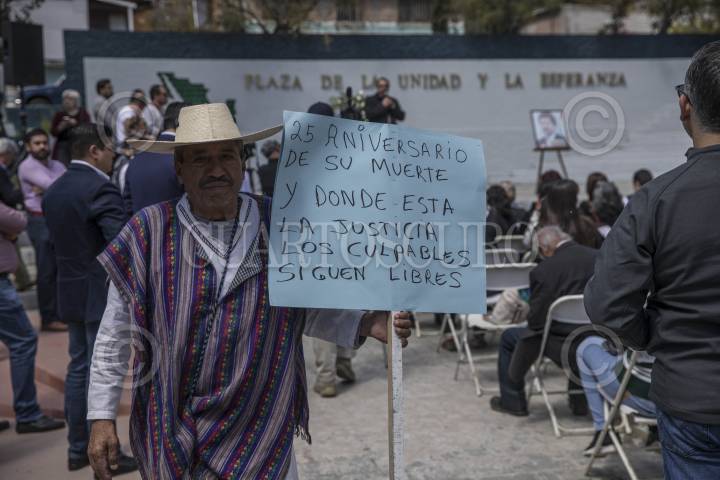 PLAZA DE LA UNIDAD Y LA ESPERANZA
25 ANIVERSARIO
DE SU MUERTE
Y DONDE ESTA
LA JUSTICIA
LOS CULPABLES
SIGUEN LIBRES
CUARTOSCURO